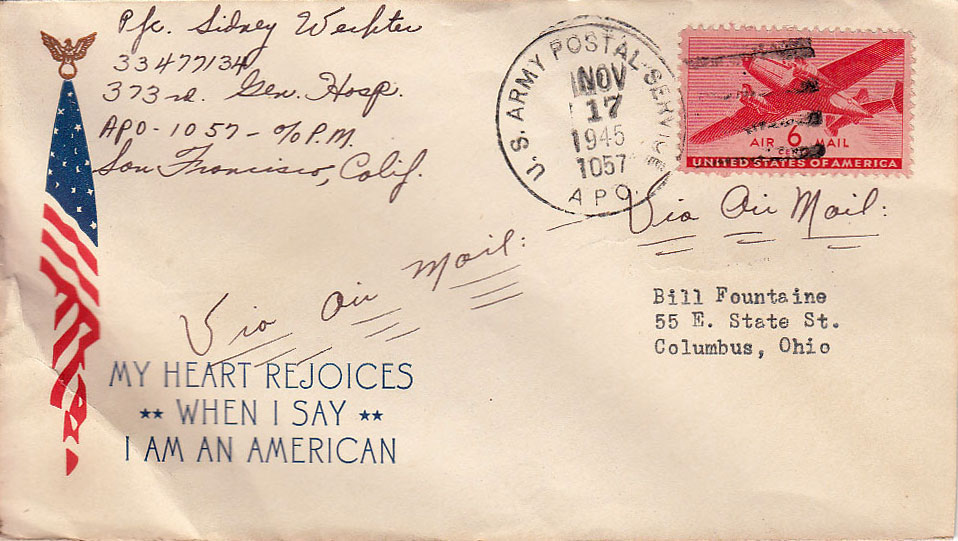 Pfc. Sidney Wechter
33477134
373rd. Gen. Hosp.
APO-1057-c/o P.M.
San Francisco, Calif.
U.S. ARMY POSTAL SERVICE
NOV
17
1945
1057
APO.
AIR 6 MAIL
CENTS
UNITED STATES OF AMERICA
Via Air Mail:
Via Air Mail:
Bill Fountaine
55 E. State St.
Columbus, Ohio
MY HEART REJOICES
★★ WHEN I SAY ★★
I AM AN AMERICAN